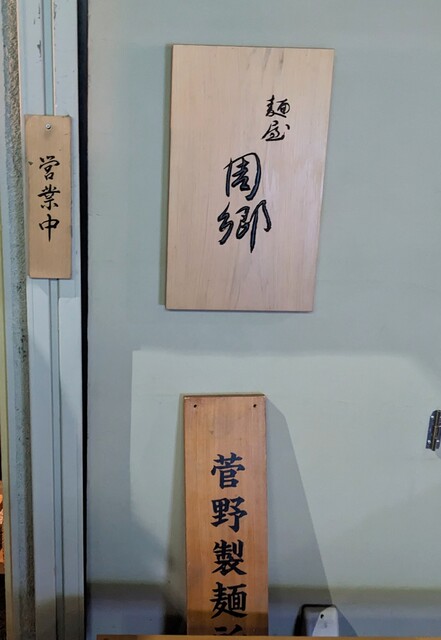 営業中
麺屋
周郷
菅野製麺